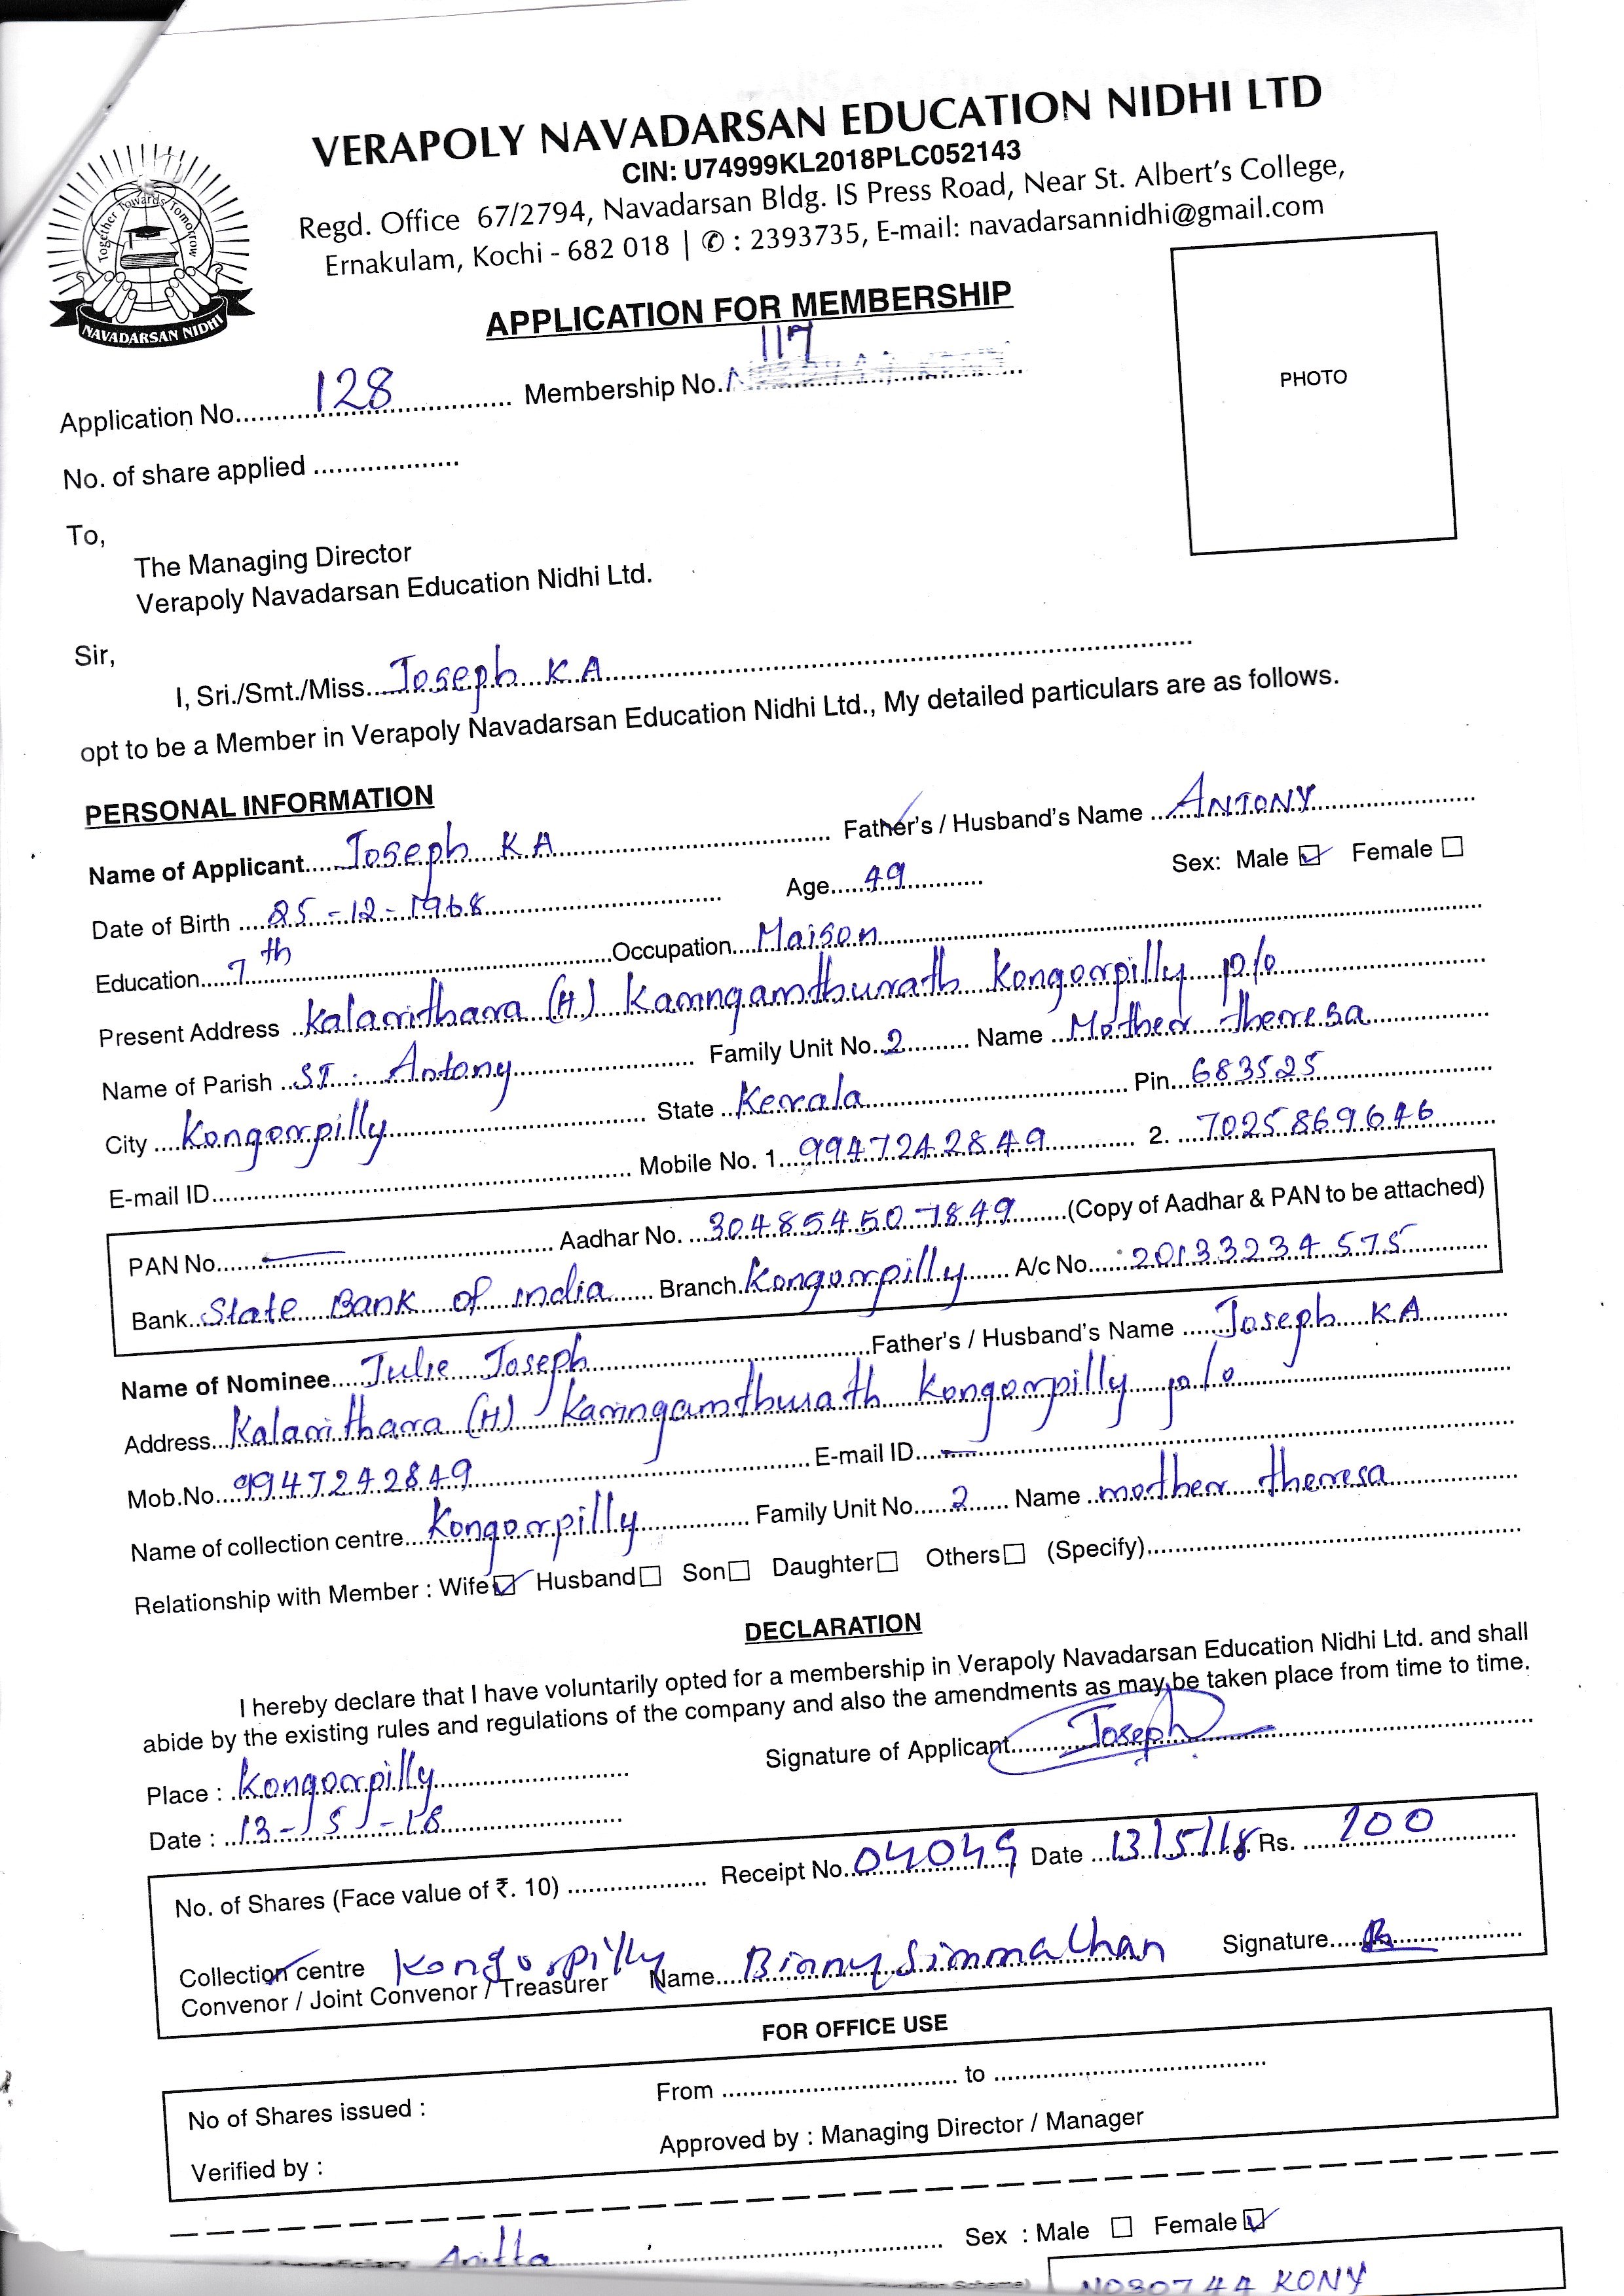 VERAPOLY NAVADARSAN EDUCATION NIDHI LTD
CIN: U74999KL2018PLC052143
Regd. Office 67/2794, Navadarsan Bldg. IS Press Road, Near St. Albert's College,
Ernakulam, Kochi - 682 018 | ✆ : 2393735, E-mail: navadarsannidhi@gmail.com
Together Towards Tomorrow
NAVADARSAN NIDHI
APPLICATION FOR MEMBERSHIP
Application No. 128 Membership No. 117
PHOTO
No. of share applied
To,
The Managing Director
Verapoly Navadarsan Education Nidhi Ltd.
Sir,
I, Sri./Smt./Miss. Joseph K A
opt to be a Member in Verapoly Navadarsan Education Nidhi Ltd., My detailed particulars are as follows.
PERSONAL INFORMATION
Name of Applicant Joseph K A Father's / Husband's Name ANTONY
Date of Birth 25-12-1968 Age 49 Sex: Male ☑ Female ☐
Education 7th Occupation Maison
Present Address Kalarithara (H) Karingamthurath Kongorpilly p/o
Name of Parish ST. Antony Family Unit No. 2 Name Mother theresa
City Kongorpilly State Kerala Pin 683525
E-mail ID Mobile No. 1. 9947242849 2. 7025869646
PAN No. — Aadhar No. 304854507849 (Copy of Aadhar & PAN to be attached)
Bank State Bank of india Branch Kongorpilly A/c No. 20133234575
Name of Nominee Julie Joseph Father's / Husband's Name Joseph KA
Address Kalarithara (H) Karingamthurath Kongorpilly p/o
Mob.No. 9947242849 E-mail ID —
Name of collection centre Kongorpilly Family Unit No. 2 Name mother theresa
Relationship with Member : Wife ☑ Husband ☐ Son ☐ Daughter ☐ Others ☐ (Specify)
DECLARATION
I hereby declare that I have voluntarily opted for a membership in Verapoly Navadarsan Education Nidhi Ltd. and shall
abide by the existing rules and regulations of the company and also the amendments as may be taken place from time to time.
Signature of Applicant Joseph
Place : Kongorpilly
Date : 13-5-18
No. of Shares (Face value of ₹. 10) Receipt No. 04049 Date 13/5/18 Rs. 100
Collection centre Kongorpilly
Convenor / Joint Convenor / Treasurer Name Binny Simmathan Signature
FOR OFFICE USE
No of Shares issued : From to
Verified by : Approved by : Managing Director / Manager
Anitta Sex : Male ☐ Female ☑
KONY